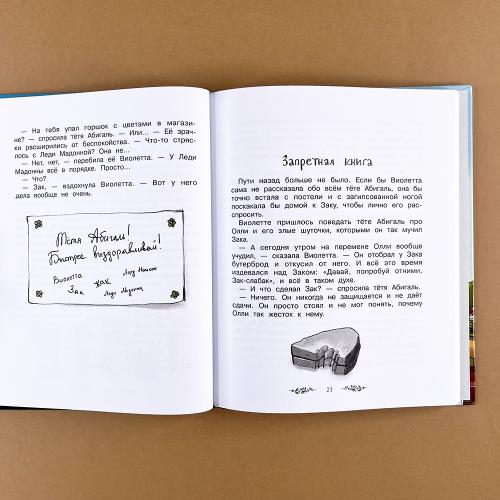 — На тебя упал горшок с цветами в магази-
не? — спросила тётя Абигаль. — Или... — Её зрач-
ки расширились от беспокойства. — Что-то стряс-
лось с Леди Мадонной? Она не...
— Нет, нет, — перебила её Виолетта. — У Леди
Мадонны всё в порядке. Просто...
— Что?
— Зак, — вздохнула Виолетта. — Вот у него
дела вообще не очень.
Тётя Абигаль!
Быстрее выздоравливай!
Виолетта
Зак
Леди Мадонна
Запретная книга
Пути назад больше не было. Если бы Виолетта
сама не рассказала обо всём тёте Абигаль, она бы
точно встала с постели и с загипсованной ногой
поскакала бы домой к Заку, чтобы лично его рас-
спросить.
Виолетте пришлось поведать тёте Абигаль про
Олли и его злые шуточки, которыми он так мучил
Зака.
— А сегодня утром на перемене Олли вообще
учудил, — сказала Виолетта. — Он отобрал у Зака
бутерброд и откусил от него. И всё это время
издевался над Заком: «Давай, попробуй отними,
Зак-слабак», и всё в таком духе.
— И что сделал Зак? — спросила тётя Абигаль.
— Ничего. Он никогда не защищается и не даёт
сдачи. Он просто стоял и не мог понять, почему
Олли так жесток к нему.
23